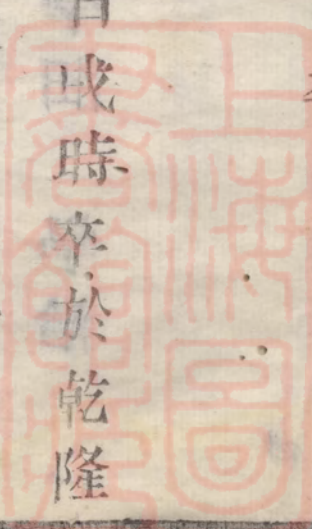 戌時卒於乾隆
上海圖
書館藏